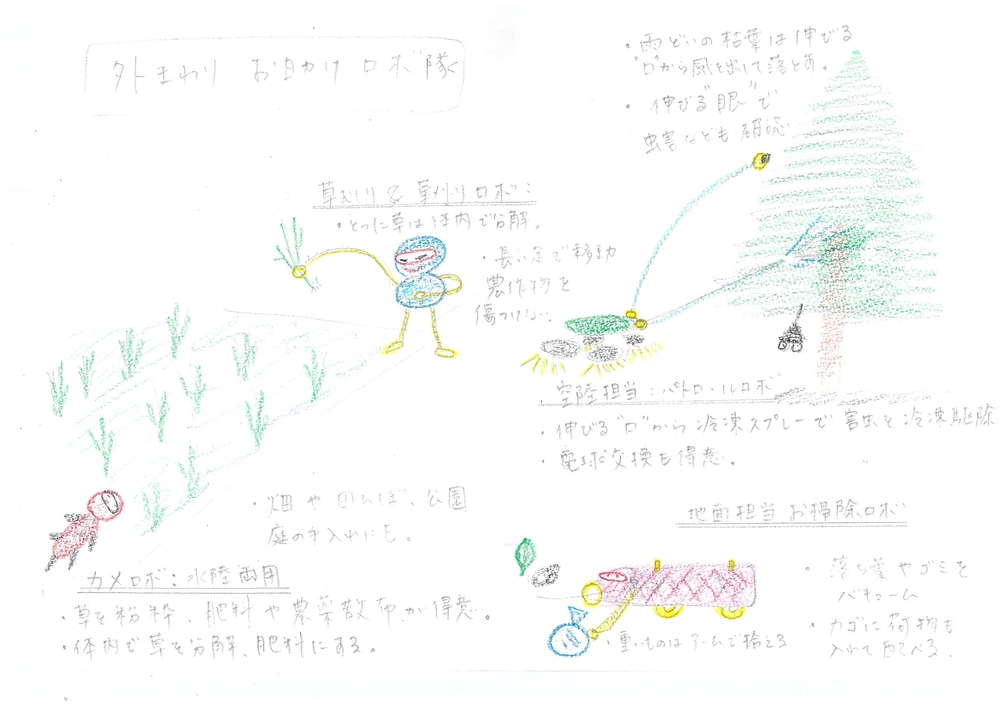 外まわり お助け ロボ隊
・雨どいの枯葉は伸びる
"口"から風を出して落とす。
・伸びる"眼"で
虫害なども確認
草むしり&草刈りロボ:
・とった草は体内で分解。
・長い足で移動
農作物を
傷つけない。
・空陸担当:パトロールロボ
・伸びる"口"から冷凍スプレーで害虫を冷凍駆除
・電球交換も得意。
・畑や田んぼ、公園
庭の手入れにも。
カメロボ:水陸両用
・草を粉粋、肥料や農薬散布が得意。
・体内で草を分解、肥料にする。
地面担当 お掃除ロボ
・落ち葉やゴミを
バキューム
・カゴに荷物も
入れて運べる。
・重いものはアームで拾える